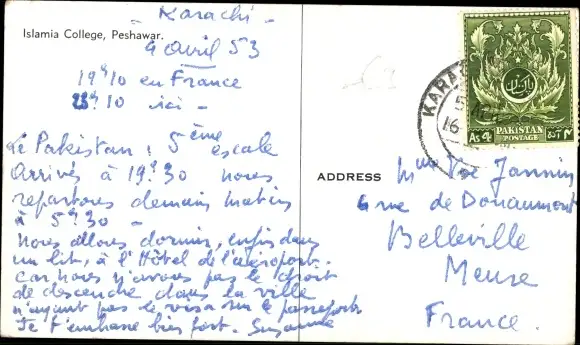 Karachi -
Islamia College, Peshawar.
4 avril 53
19h10 en France
23h10 ici -
Le Pakistan : 5ème escale
Arrivés à 19h30 nous
repartons demain matin
à 5h30 -
Nous allons dormir, enfin dans
un lit, à l'Hôtel de l'aéroport.
Car nous n'avons pas le droit
de descendre dans la ville
n'ayant pas le visa sur le passeport
Je t'embrasse bien fort. Suzanne
ADDRESS
Mme Jannin
4 rue de Douaumont
Belleville
Meuse
France.
KARA
16
PAKISTAN
POSTAGE
As 4